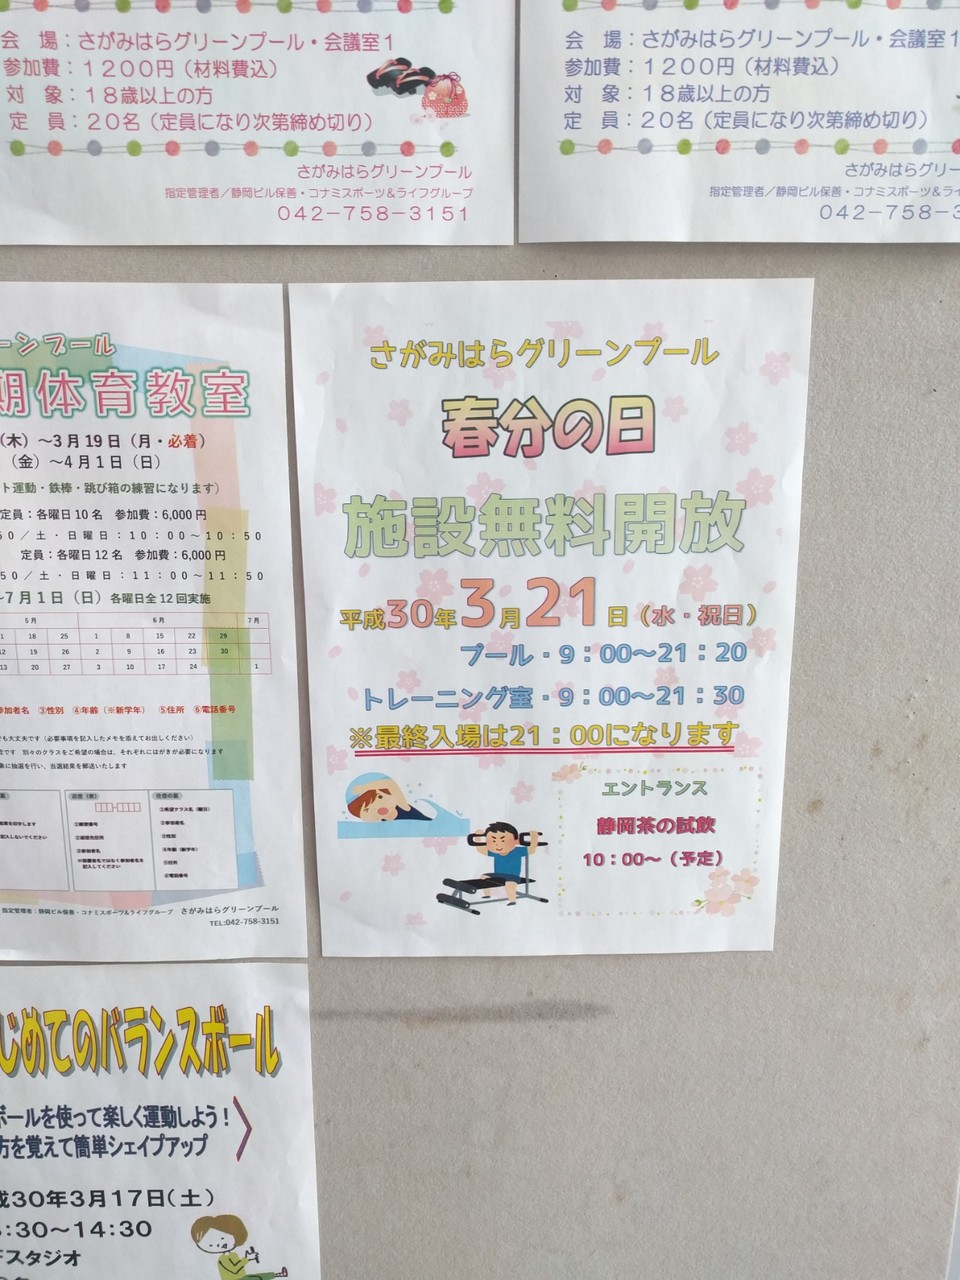 会 場：さがみはらグリーンプール・会議室1
参加費：1200円（材料費込）
対 象：18歳以上の方
定 員：20名（定員になり次第締め切り）
さがみはらグリーンプール
指定管理者／静岡ビル保善・コナミスポーツ＆ライフグループ
042-758-3151
会 場：さがみはらグリーンプール・会議室1
参加費：1200円（材料費込）
対 象：18歳以上の方
定 員：20名（定員になり次第締め切り）
さがみはらグリー
指定管理者／静岡ビル保善・コナミスポーツ＆ラ
042-758-3
ーンプール
期体育教室
（木）～3月19日（月・必着）
（金）～4月1日（日）
ト運動・鉄棒・跳び箱の練習になります）
定員：各曜日10名 参加費：6,000円
50／土・日曜日：10：00～10：50
定員：各曜日12名 参加費：6,000円
50／土・日曜日：11：00～11：50
～7月1日（日）各曜日全12回実施
5月 6月 7月
18 25 1 8 15 22 29
12 19 26 2 9 16 23 30
13 20 27 3 10 17 24 1
参加者名 ③性別 ④年齢（※新学年） ⑤住所 ⑥電話番号
でも大丈夫です（必要事項を記入したメモを添えてお出しください）
です 別々のクラスをご希望の場合は、それぞれにはがきが必要になります
に抽選を行い、当選結果を郵送いたします
指定管理者：静岡ビル保善・コナミスポーツ＆ライフグループ さがみはらグリーンプール
TEL:042-758-3151
さがみはらグリーンプール
春分の日
施設無料開放
平成30年3月21日（水・祝日）
プール・9：00～21：20
トレーニング室・9：00～21：30
※最終入場は21：00になります
エントランス
静岡茶の試飲
10：00～（予定）
じめてのバランスボール
ボールを使って楽しく運動しよう！
方を覚えて簡単シェイプアップ
成30年3月17日（土）
:30～14:30
スタジオ